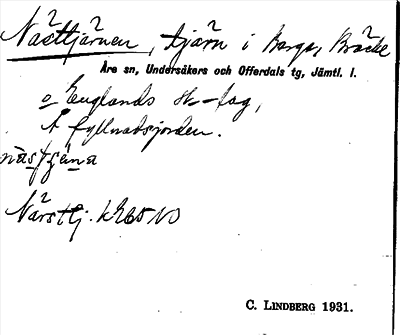 Nästtjärnen, tjärn i Berge, Bräcke
Åre sn, Undersåkers och Offerdals tg, Jämtl. l.
o Englands sk-lag,
å fyllnadsjorden.
Närsttj. k265 NO
C. LINDBERG 1931.